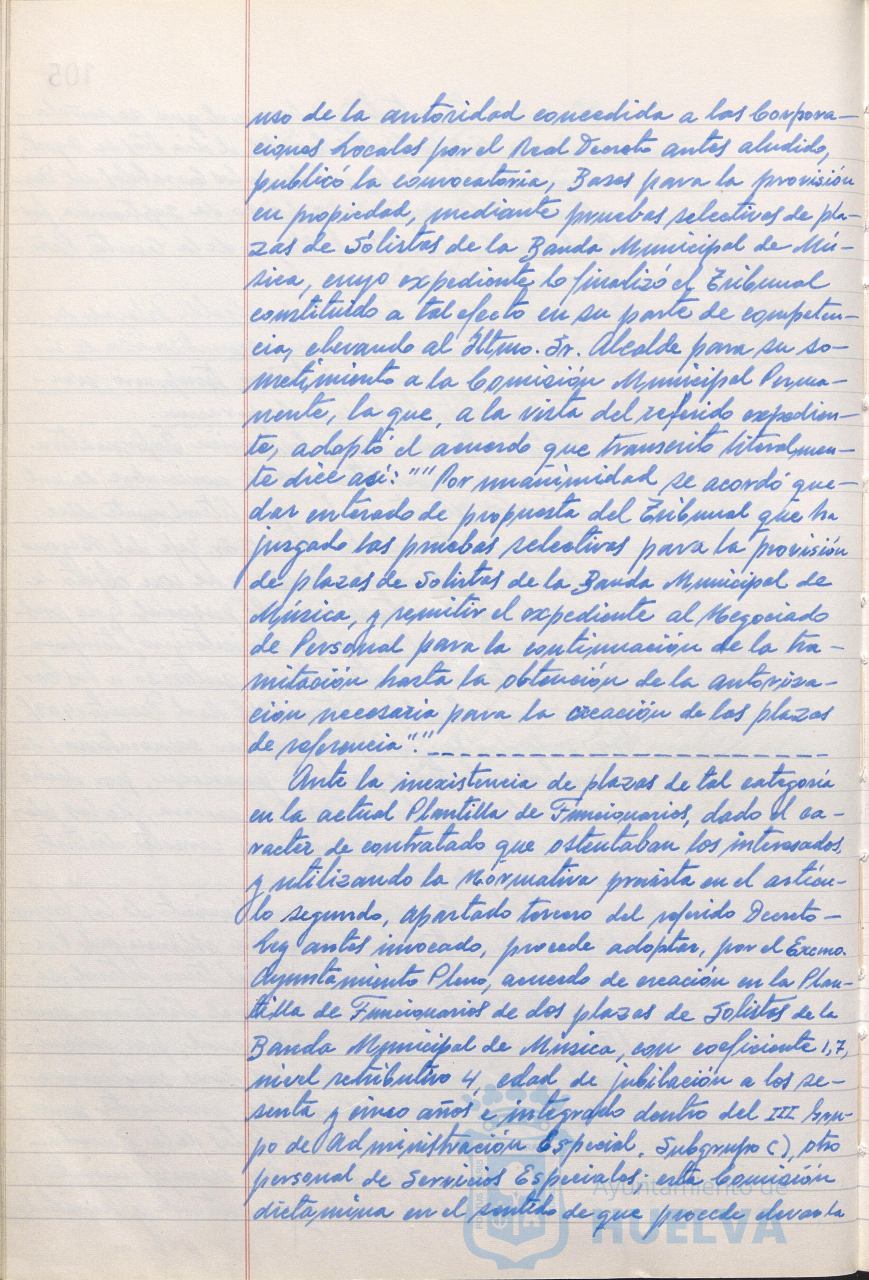 uso de la autoridad concedida a las Corpora-
ciones Locales por el Real Decreto antes aludido,
publicó la convocatoria, Bases para la provisión
en propiedad, mediante pruebas selectivas de pla-
zas de Sólistas de la Banda Municipal de Mú-
sica, cuyo expediente lo finalizó el Tribunal
constituido a tal efecto en su parte de competen-
cia, elevando al Iltmo. Sr. Alcalde para su so-
metimiento a la Comisión Municipal Perma-
nente, la que, a la vista del referido expedien-
te, adoptó el acuerdo que transcrito literalmen-
te dice así: ""Por unanimidad se acordó que-
dar enterado de propuesta del Tribunal que ha
juzgado las pruebas selectivas para la provisión
de plazas de Solistas de la Banda Municipal de
Música, y remitir el expediente al Negociado
de Personal para la continuación de la tra-
mitación hasta la obtención de la autoriza-
ción necesaria para la creación de las plazas
de referencia"."
Ante la inexistencia de plazas de tal categoría
en la actual Plantilla de Funcionarios, dado el ca-
racter de contratado que ostentaban los interesados,
y utilizando la Normativa prevista en el artícu-
lo segundo, apartado tercero del referido Decreto-
Ley antes invocado, procede adoptar, por el Excmo.
Ayuntamiento Pleno, acuerdo de creación en la Plan-
tilla de Funcionarios de dos plazas de Solistas de la
Banda Municipal de Música, con coeficiente 1,7,
nivel retributivo 4, edad de jubilación a los se-
senta y cinco años e integrado dentro del III Gru-
po de Administración Especial, Subgrupo C), otro
personal de Servicios Especiales; esta Comisión
dictamina en el sentido de que procede elevar la
Ayuntamiento de
HUELVA
105